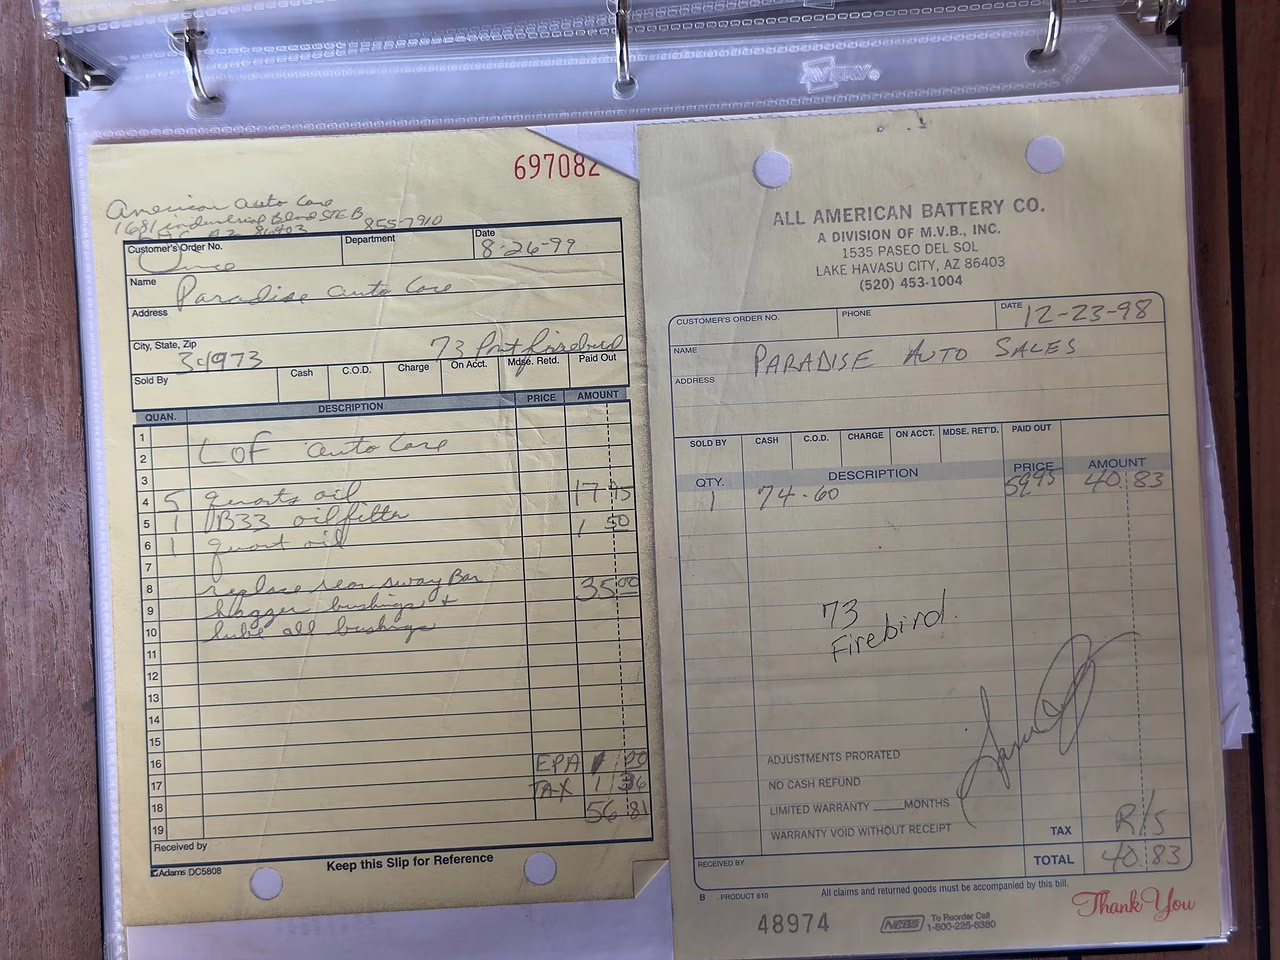 AVERY
697082
American Auto Care
1681 industrial Blvd STE B
AZ 86403 855-7910
Customer's Order No.
Department
Date
8-26-99
Name
Paradise Auto Care
Address
City, State, Zip
73
Sold By
Cash
C.O.D.
Charge
On Acct.
Mdse. Retd.
Paid Out
QUAN.
DESCRIPTION
PRICE
AMOUNT
1
2 LOF Auto Care
3
4 5 quarts oil 17 95
5 1 PB33 oil filter 1 50
6 1 quart oil
7
8 replace rear sway Bar 35 00
9 bushings +
10 lube all bushings
11
12
13
14
15
16 EPA 1 00
17 TAX 1 36
18 56 81
19
Received by
Adams DC5808
Keep this Slip for Reference
ALL AMERICAN BATTERY CO.
A DIVISION OF M.V.B., INC.
1535 PASEO DEL SOL
LAKE HAVASU CITY, AZ 86403
(520) 453-1004
CUSTOMER'S ORDER NO.
PHONE
DATE
12-23-98
NAME
PARADISE AUTO SALES
ADDRESS
SOLD BY
CASH
C.O.D.
CHARGE
ON ACCT.
MDSE. RET'D.
PAID OUT
QTY.
DESCRIPTION
PRICE
AMOUNT
1 74-60 59.95 40 83
73
Firebird.
ADJUSTMENTS PRORATED
NO CASH REFUND
LIMITED WARRANTY _____ MONTHS
WARRANTY VOID WITHOUT RECEIPT
TAX R/S
RECEIVED BY
TOTAL 40 83
B PRODUCT 610
All claims and returned goods must be accompanied by this bill.
48974
NEBS
To Reorder Call
1-800-225-6380
Thank You